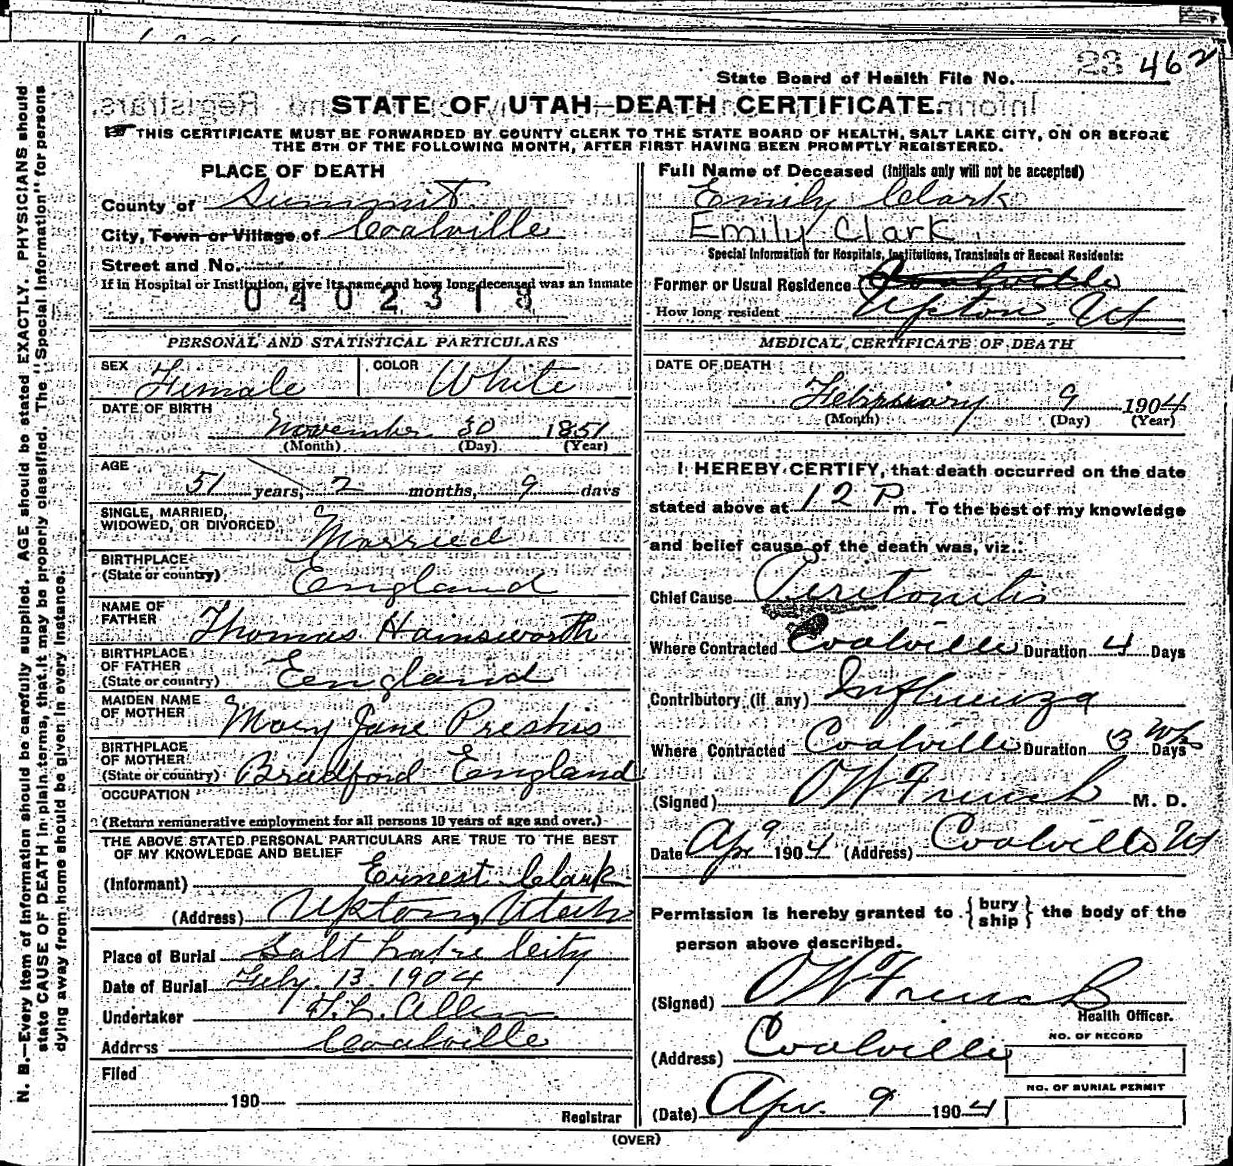 State Board of Health File No. 23 462
STATE OF UTAH—DEATH CERTIFICATE.
THIS CERTIFICATE MUST BE FORWARDED BY COUNTY CLERK TO THE STATE BOARD OF HEALTH, SALT LAKE CITY, ON OR BEFORE
THE 5TH OF THE FOLLOWING MONTH, AFTER FIRST HAVING BEEN PROMPTLY REGISTERED.
PLACE OF DEATH
County of Summit
City, Town or Village of Coalville
Street and No.
If in Hospital or Institution, give its name and how long deceased was an inmate
0402318
PERSONAL AND STATISTICAL PARTICULARS
SEX Female COLOR White
DATE OF BIRTH
November 30 1851
(Month) (Day) (Year)
AGE
51 years, 2 months, 9 days
SINGLE, MARRIED,
WIDOWED, OR DIVORCED Married
BIRTHPLACE
(State or country) England
NAME OF
FATHER Thomas Hainsworth
BIRTHPLACE
OF FATHER
(State or country) England
MAIDEN NAME
OF MOTHER Mary Jane
BIRTHPLACE
OF MOTHER
(State or country) Bradford England
OCCUPATION
(Return remunerative employment for all persons 10 years of age and over.)
THE ABOVE STATED PERSONAL PARTICULARS ARE TRUE TO THE BEST
OF MY KNOWLEDGE AND BELIEF
(Informant) Ernest Clark
(Address) Upton, Utah
Place of Burial Salt Lake City
Date of Burial Feby. 13. 1904
Undertaker Allen
Address Coalville
Filed
190
Registrar
Full Name of Deceased (Initials only will not be accepted)
Emily Clark
Emily Clark
Special Information for Hospitals, Institutions, Transients or Recent Residents:
Former or Usual Residence Coalville
How long resident Upton, Ut
MEDICAL CERTIFICATE OF DEATH
DATE OF DEATH
February 9 1904
(Month) (Day) (Year)
I HEREBY CERTIFY, that death occurred on the date
stated above at 12 P m. To the best of my knowledge
and belief cause of the death was, viz.:
Chief Cause Peritonitis
Where Contracted Coalville Duration 4 Days
Contributory (if any) Influenza
Where Contracted Coalville Duration 3 Wks Days
(Signed) O W French M. D.
Date Apr 9 1904 (Address) Coalville Ut
Permission is hereby granted to {bury
ship} the body of the
person above described.
(Signed) O W French
Health Officer.
(Address) Coalville
NO. OF RECORD
NO. OF BURIAL PERMIT
(Date) Apr. 9 1904
(OVER)
N. B.—Every item of information should be carefully supplied. AGE should be stated EXACTLY. PHYSICIANS should
state CAUSE OF DEATH in plain terms, that it may be properly classified. The "Special Information" for persons
dying away from home should be given in every instance.